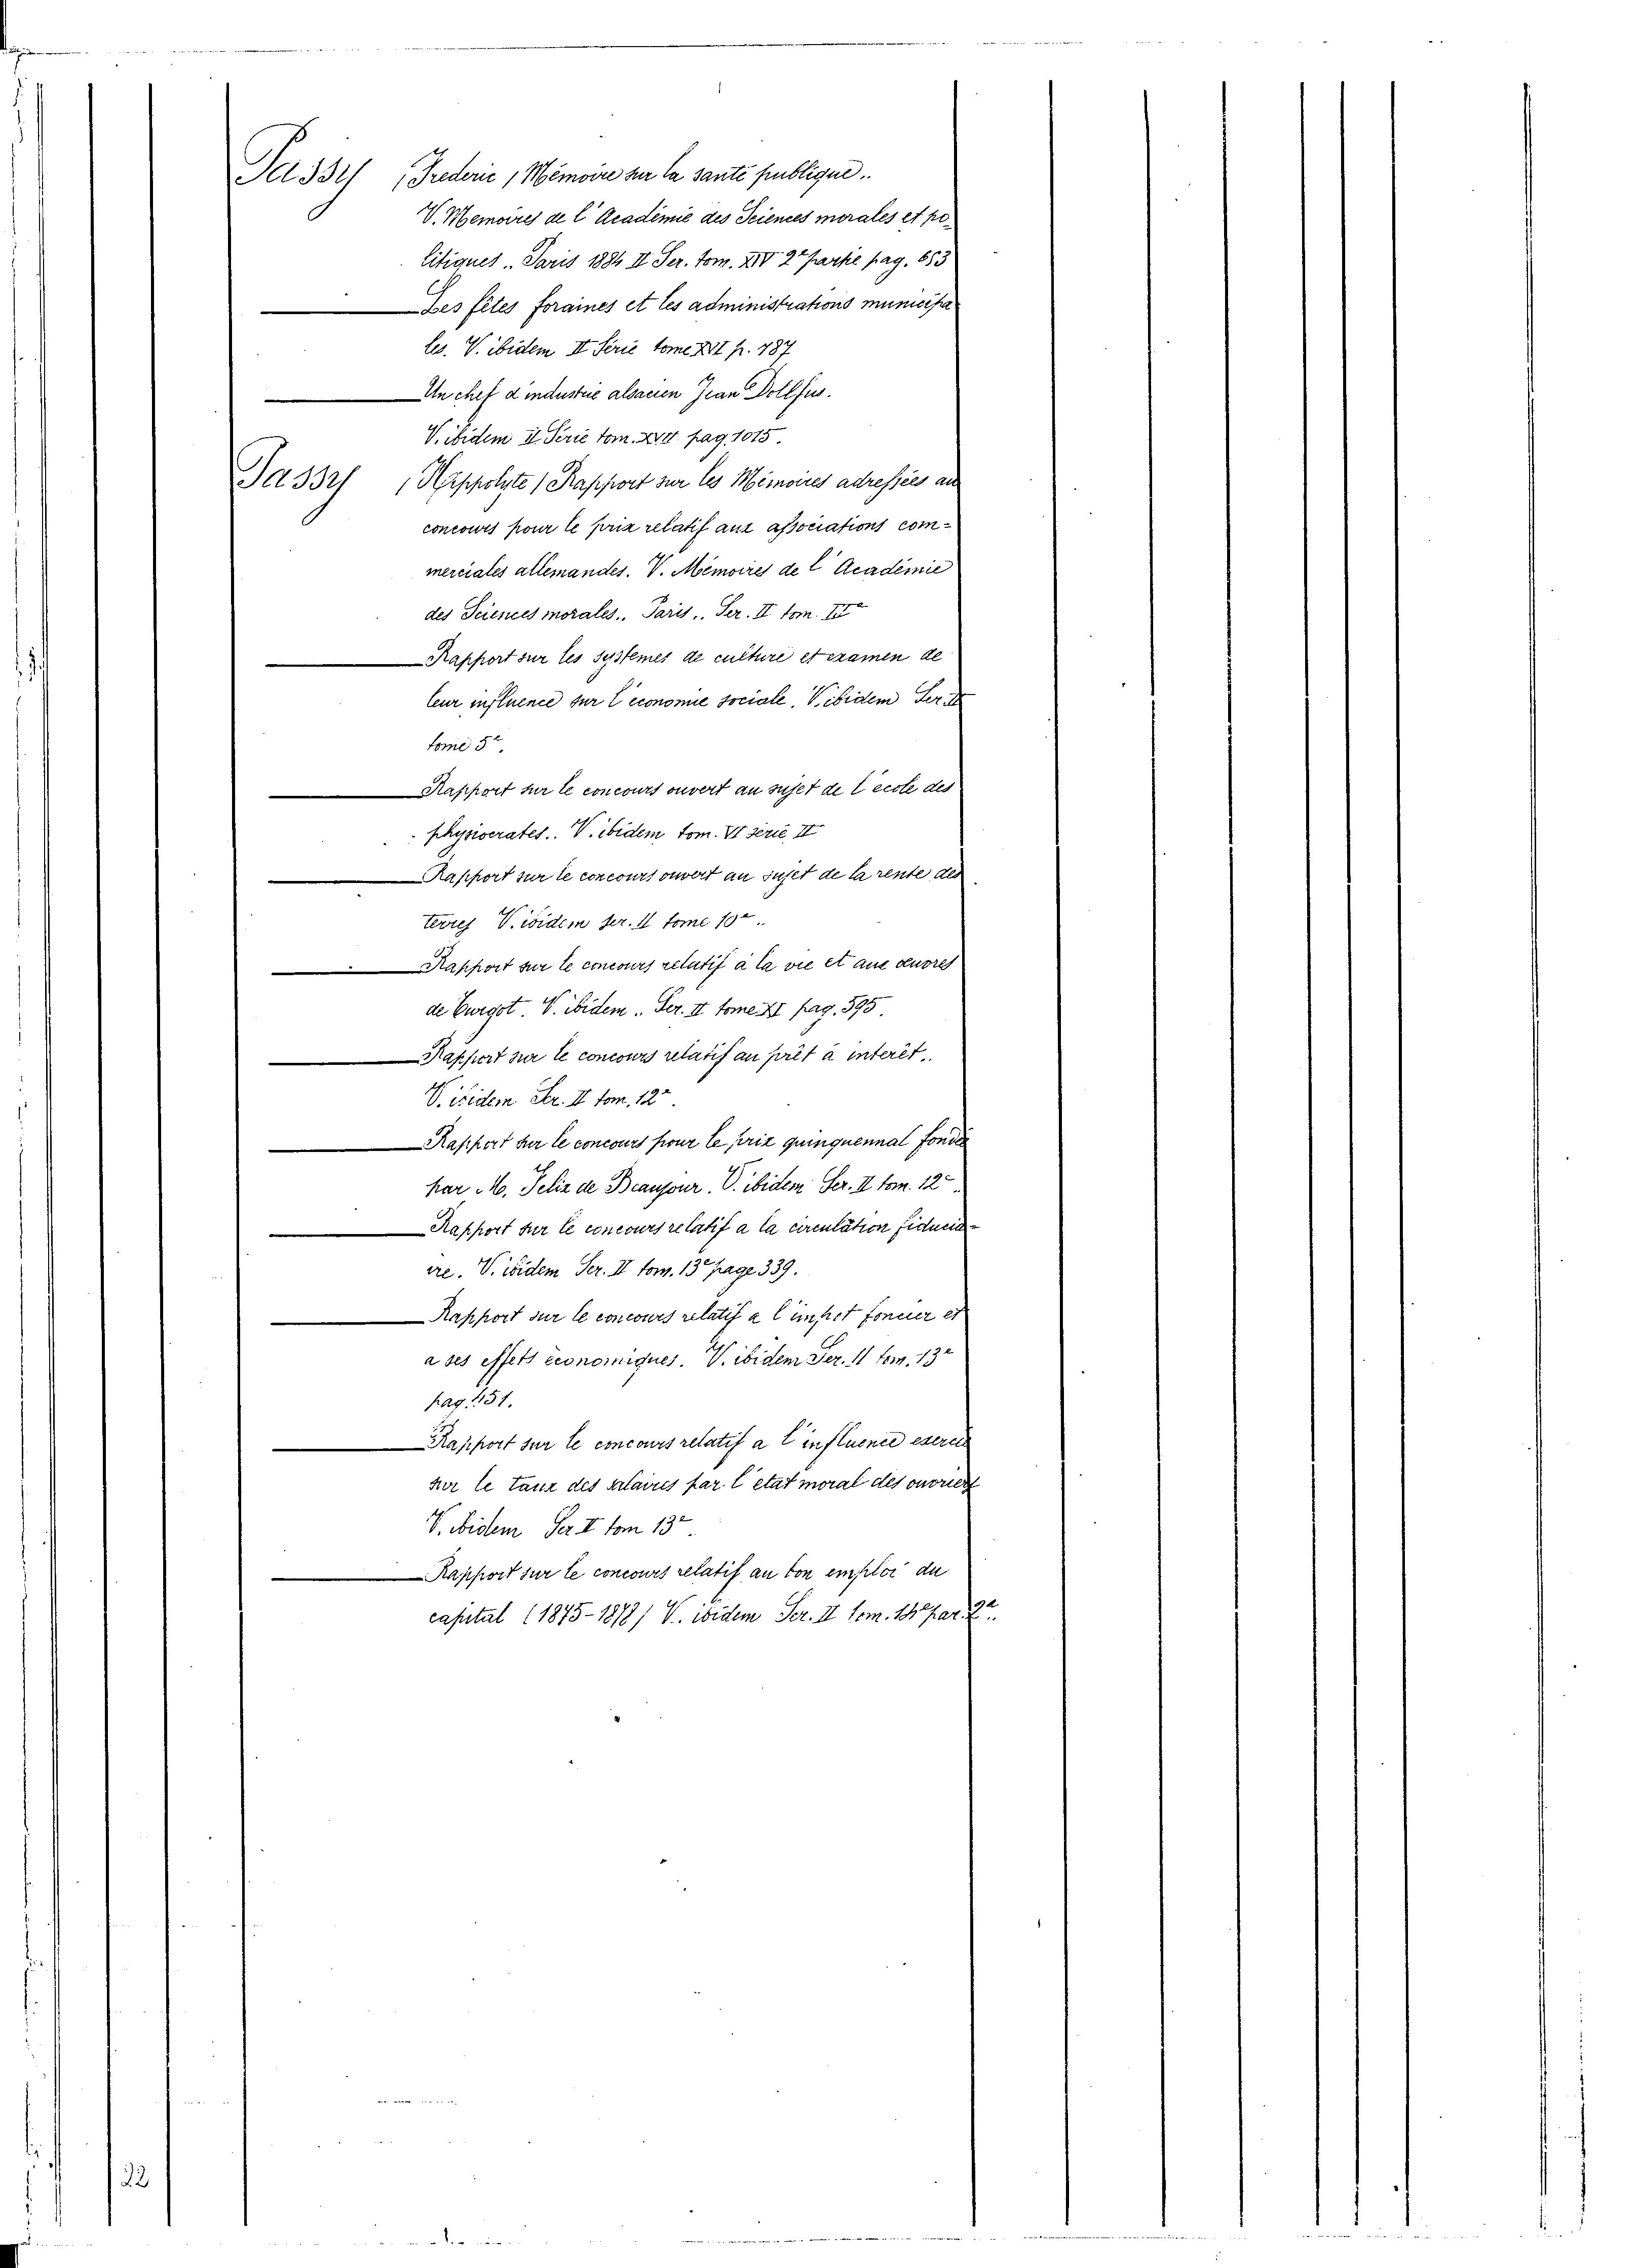 Passy (Frederic) Mémoire sur la santé publique..
V. Memoires de l'Académie des Sciences morales et po-
litiques.. Paris 1884 II Ser. tom. XIV 2e partie pag. 653
Les fêtes foraines et les administrations municipa
les. V. ibidem II Serie tome XVI p. 787
Un chef d'industrie alsacien Jean Dollfus.
V. ibidem II Serie tom. XVII pag. 1015.
Passy (Hippolyte) Rapport sur les Mémoires adressées au
concours pour le prix relatif aux associations com-
merciales allemandes. V. Mémoires de l'Académie
des Sciences morales.. Paris.. Ser. II tom.
Rapport sur les systemes de culture et examen de
leur influence sur l'économie sociale. V. ibidem Ser. II
tome 5e.
Rapport sur le concours ouvert au sujet de l'ecole des
physiocrates.. V. ibidem tom. VI serie II
Rapport sur le concours ouvert au sujet de la rente des
terres V. ibidem ser. II tome 10e..
Rapport sur le concours relatif à la vie et aux œuvres
de Turgot. V. ibidem.. Ser. II tome XI pag. 595.
Rapport sur le concours relatif au prêt à interêt..
V. ibidem Ser. II tom. 12e.
Rapport sur le concours pour le prix quinquennal fondé
par M. Felix de Beaujour. V. ibidem Ser. II tom. 12e.
Rapport sur le concours relatif a la circulation fiducia-
ire. V. ibidem Ser. II tom. 13e page 339.
Rapport sur le concours relatif a l'impot foncier et
a ses effets économiques. V. ibidem Ser. II tom. 13e
pag. 451.
Rapport sur le concours relatif a l'influence exercée
sur le taux des salaires par l'état moral des ouvriers
V. ibidem Ser II tom 13e.
Rapport sur le concours relatif au bon emploi du
capital (1875-1878) V. ibidem Ser. II tom. 14e par. 2e.
22